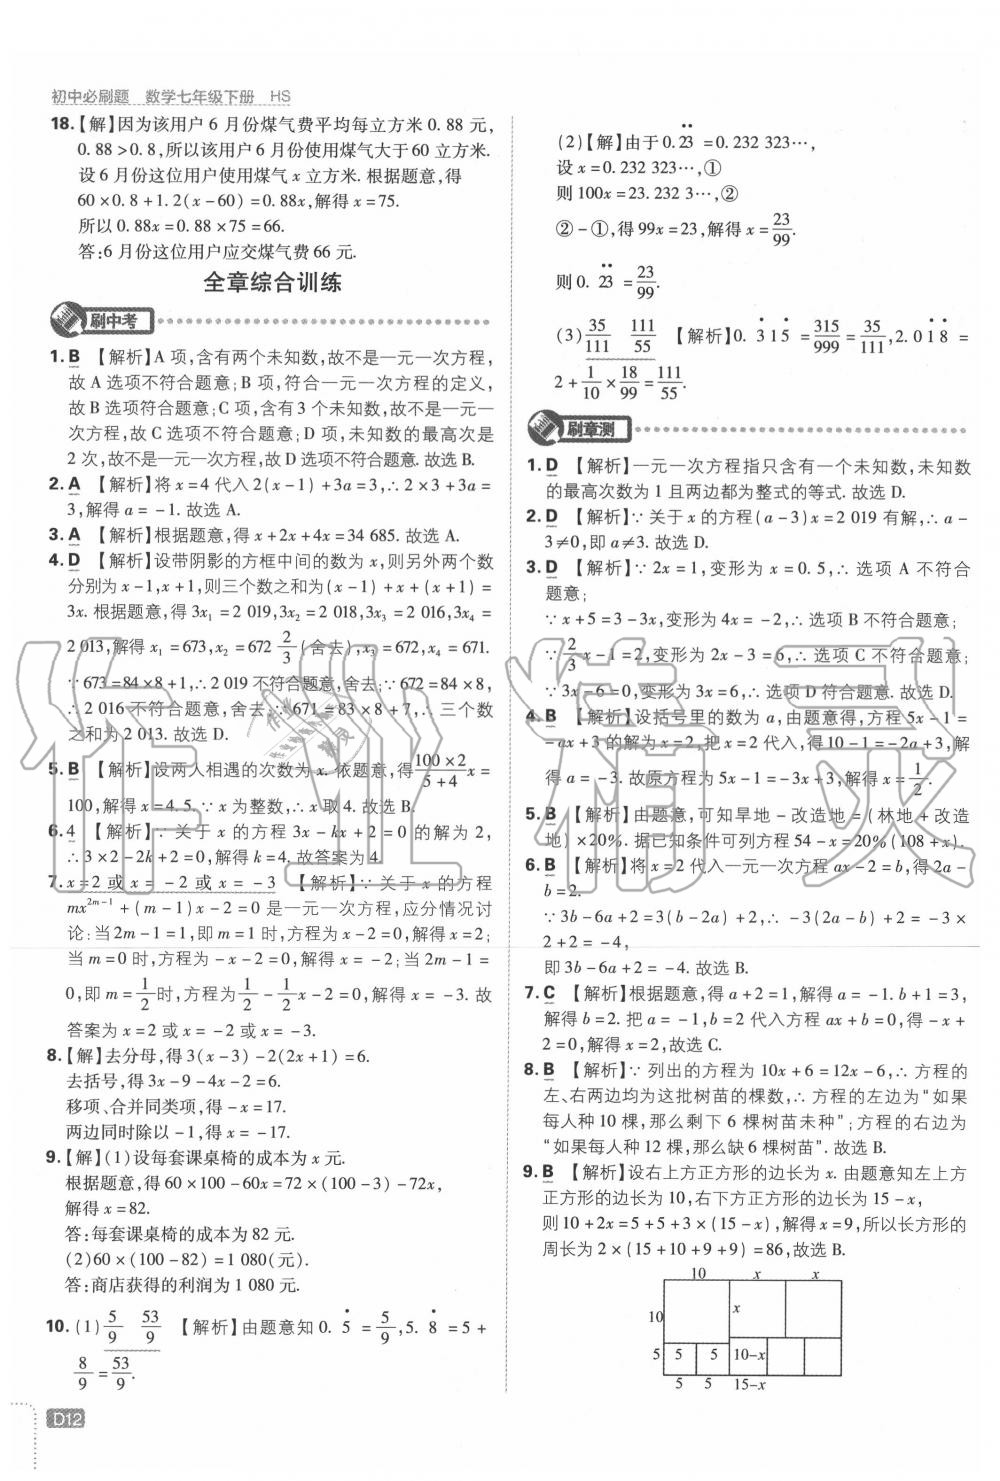 初中必刷题 数学七年级下册 HS
18.【解】因为该用户6月份煤气费平均每立方米0.88元,
0.88>0.8,所以该用户6月份使用煤气大于60立方米.
设6月份这位用户使用煤气x立方米.根据题意,得
60×0.8+1.2(x-60)=0.88x,解得x=75.
所以0.88x=0.88×75=66.
答:6月份这位用户应交煤气费66元.
全章综合训练
刷中考
1.B 【解析】A项,含有两个未知数,故不是一元一次方程,
故A选项不符合题意;B项,符合一元一次方程的定义,
故B选项符合题意;C项,含有3个未知数,故不是一元一
次方程,故C选项不符合题意;D项,未知数的最高次是
2次,故不是一元一次方程,故D选项不符合题意.故选B.
2.A 【解析】将x=4代入2(x-1)+3a=3,∴2×3+3a=
3,解得a=-1.故选A.
3.A 【解析】根据题意,得x+2x+4x=34 685.故选A.
4.D 【解析】设带阴影的方框中间的数为x,则另外两个数
分别为x-1,x+1,则三个数之和为(x-1)+x+(x+1)=
3x.根据题意,得3x₁=2 019,3x₂=2 018,3x₃=2 016,3x₄=
2 013,解得x₁=673,x₂=672 2/3(舍去),x₃=672,x₄=671.
∵673=84×8+1,∴2 019不符合题意;∵672=84×8,
∴2 016不符合题意;∵671=83×8+7,∴三个数
之和为2 013.故选D.
5.B 【解析】设两人相遇的次数为x.依题意,得(100×2)/(5+4)x=
100,解得x=4.5.∵x为整数,∴x取4.故选B.
6.4 【解析】∵关于x的方程3x-kx+2=0的解为2,
∴3×2-2k+2=0,解得k=4.故答案为4.
7.x=2或x=-2或x=-3 【解析】∵关于x的方程
mx²ᵐ⁻¹+(m-1)x-2=0是一元一次方程,应分情况讨
论:当2m-1=1,即m=1时,方程为x-2=0,解得x=2;
当m=0时,方程为-x-2=0,解得x=-2;当2m-1=
0,即m=1/2时,方程为1/2-1/2x-2=0,解得x=-3.故
答案为x=2或x=-2或x=-3.
8.【解】去分母,得3(x-3)-2(2x+1)=6.
去括号,得3x-9-4x-2=6.
移项、合并同类项,得-x=17.
两边同时除以-1,得x=-17.
9.【解】(1)设每套课桌椅的成本为x元.
根据题意,得60×100-60x=72×(100-3)-72x,
解得x=82.
答:每套课桌椅的成本为82元.
(2)60×(100-82)=1 080(元).
答:商店获得的利润为1 080元.
10.(1)5/9 53/9 【解析】由题意知0.5̇=5/9,5.8̇=5+
8/9=53/9.
D12
(2)【解】由于0.2̇3̇=0.232 323…,
设x=0.232 323…,①
则100x=23.232 3…,②
②-①,得99x=23,解得x=23/99.
则0.2̇3̇=23/99.
(3)35/111 111/55 【解析】0.3̇15̇=315/999=35/111,2.01̇8̇=
2+1/10×18/99=111/55.
刷章测
1.D 【解析】一元一次方程指只含有一个未知数,未知数
的最高次数为1且两边都为整式的等式.故选D.
2.D 【解析】∵关于x的方程(a-3)x=2 019有解,∴a-
3≠0,即a≠3.故选D.
3.D 【解析】∵2x=1,变形为x=0.5,∴选项A不符合
题意;
∵x+5=3-3x,变形为4x=-2,∴选项B不符合题意;
∵2/3x-1=2,变形为2x-3=6,∴选项C不符合题意;
∵3x-6=0,变形为3x=6,∴选项D符合题意.故选D.
4.B 【解析】设括号里的数为a,由题意得,方程5x-1=
-ax+3的解为x=2.把x=2代入,得10-1=-2a+3,解
得a=-3.故原方程为5x-1=-3x+3,解得x=1/2.
5.B 【解析】由题意,可知旱地-改造地=(林地+改造
地)×20%.据已知条件可列方程54-x=20%(108+x).
6.B 【解析】将x=2代入一元一次方程ax-2=b,得2a-
b=2.
∵3b-6a+2=3(b-2a)+2,∴-3(2a-b)+2=-3×
2+2=-4,
即3b-6a+2=-4.故选B.
7.C 【解析】根据题意,得a+2=1,解得a=-1.b+1=3,
解得b=2.把a=-1,b=2代入方程ax+b=0,得-x+
2=0,解得x=2,故选C.
8.B 【解析】∵列出的方程为10x+6=12x-6,∴方程的
左、右两边均为这批树苗的棵数,∴方程的左边为“如果
每人种10棵,那么剩下6棵树苗未种”;方程的右边为
“如果每人种12棵,那么缺6棵树苗”.故选B.
9.B 【解析】设右上方正方形的边长为x.由题意知左上方
正方形的边长为10,右下方正方形的边长为15-x,
则10+2x=5+5+3×(15-x),解得x=9,所以长方形的
周长为2×(15+10+9+9)=86,故选B.
10 x x
10 x
5 5 5 10-x
5 5 15-x
作业精灵